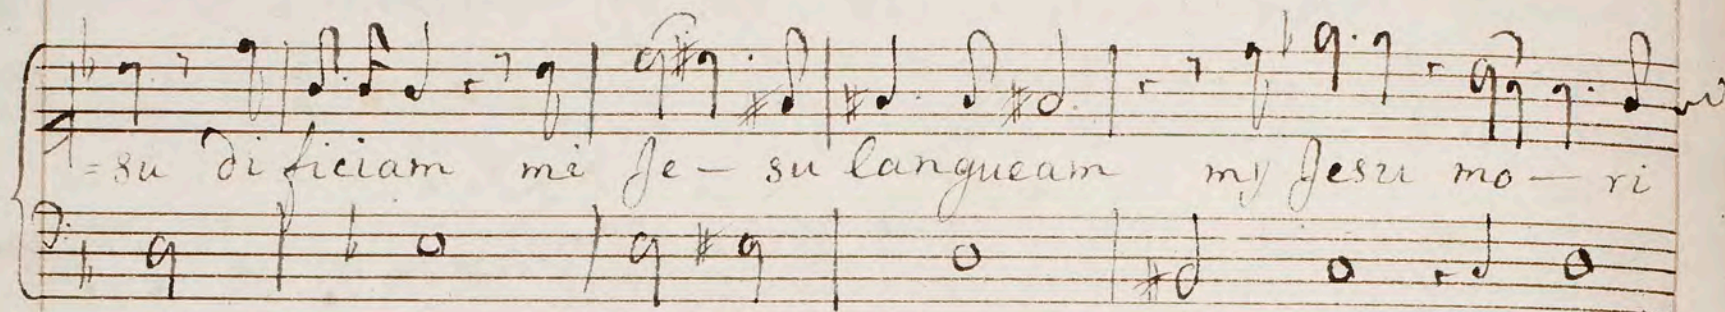 =su dificiam mi Je- su langueam my Jesu mo- ri